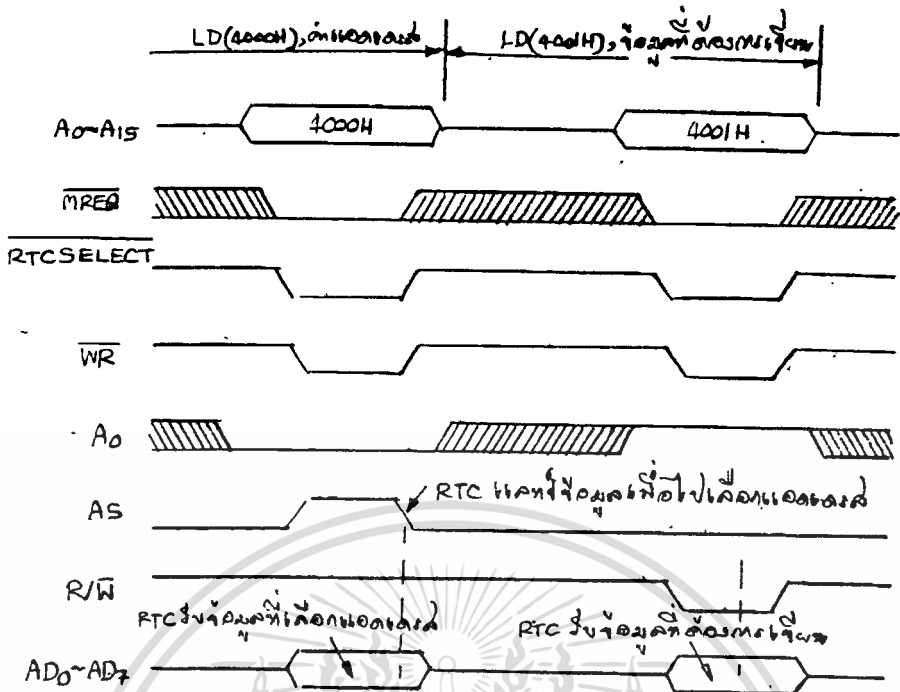 LD(4000H), ค่าแอดเดรส
LD(4001H), ข้อมูลที่ต้องการเขียน
A0~A15
4000H
4001H
MREQ
RTCSELECT
WR
A0
AS
RTC แลทช์ข้อมูลเพื่อไปเลือกแอดเดรส
R/W
RTC รับข้อมูลที่เลือกแอดเดรส
RTC รับข้อมูลที่ต้องการเขียน
AD0~AD7